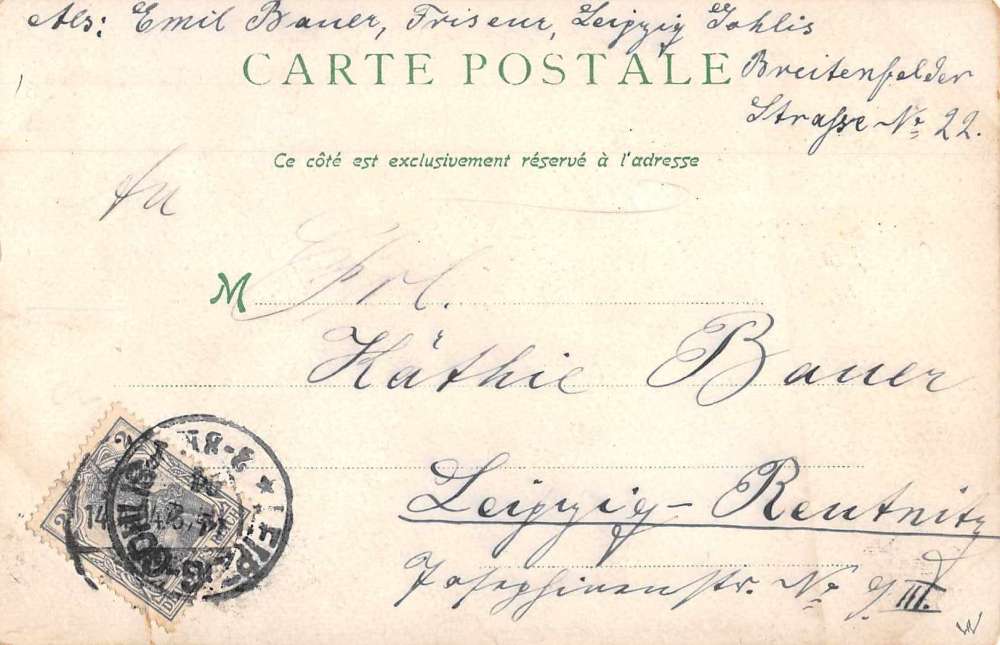 Abs: Emil Bauer, Friseur, Leipzig Gohlis
CARTE POSTALE
Breitenfelder
Strasse No 22.
Ce côté est exclusivement réservé à l'adresse
An
M Frl.
Käthie Bauer
Leipzig-Reutnitz
Josephinenstr. No 9 III.
LEIPZIG-GOHLIS
2